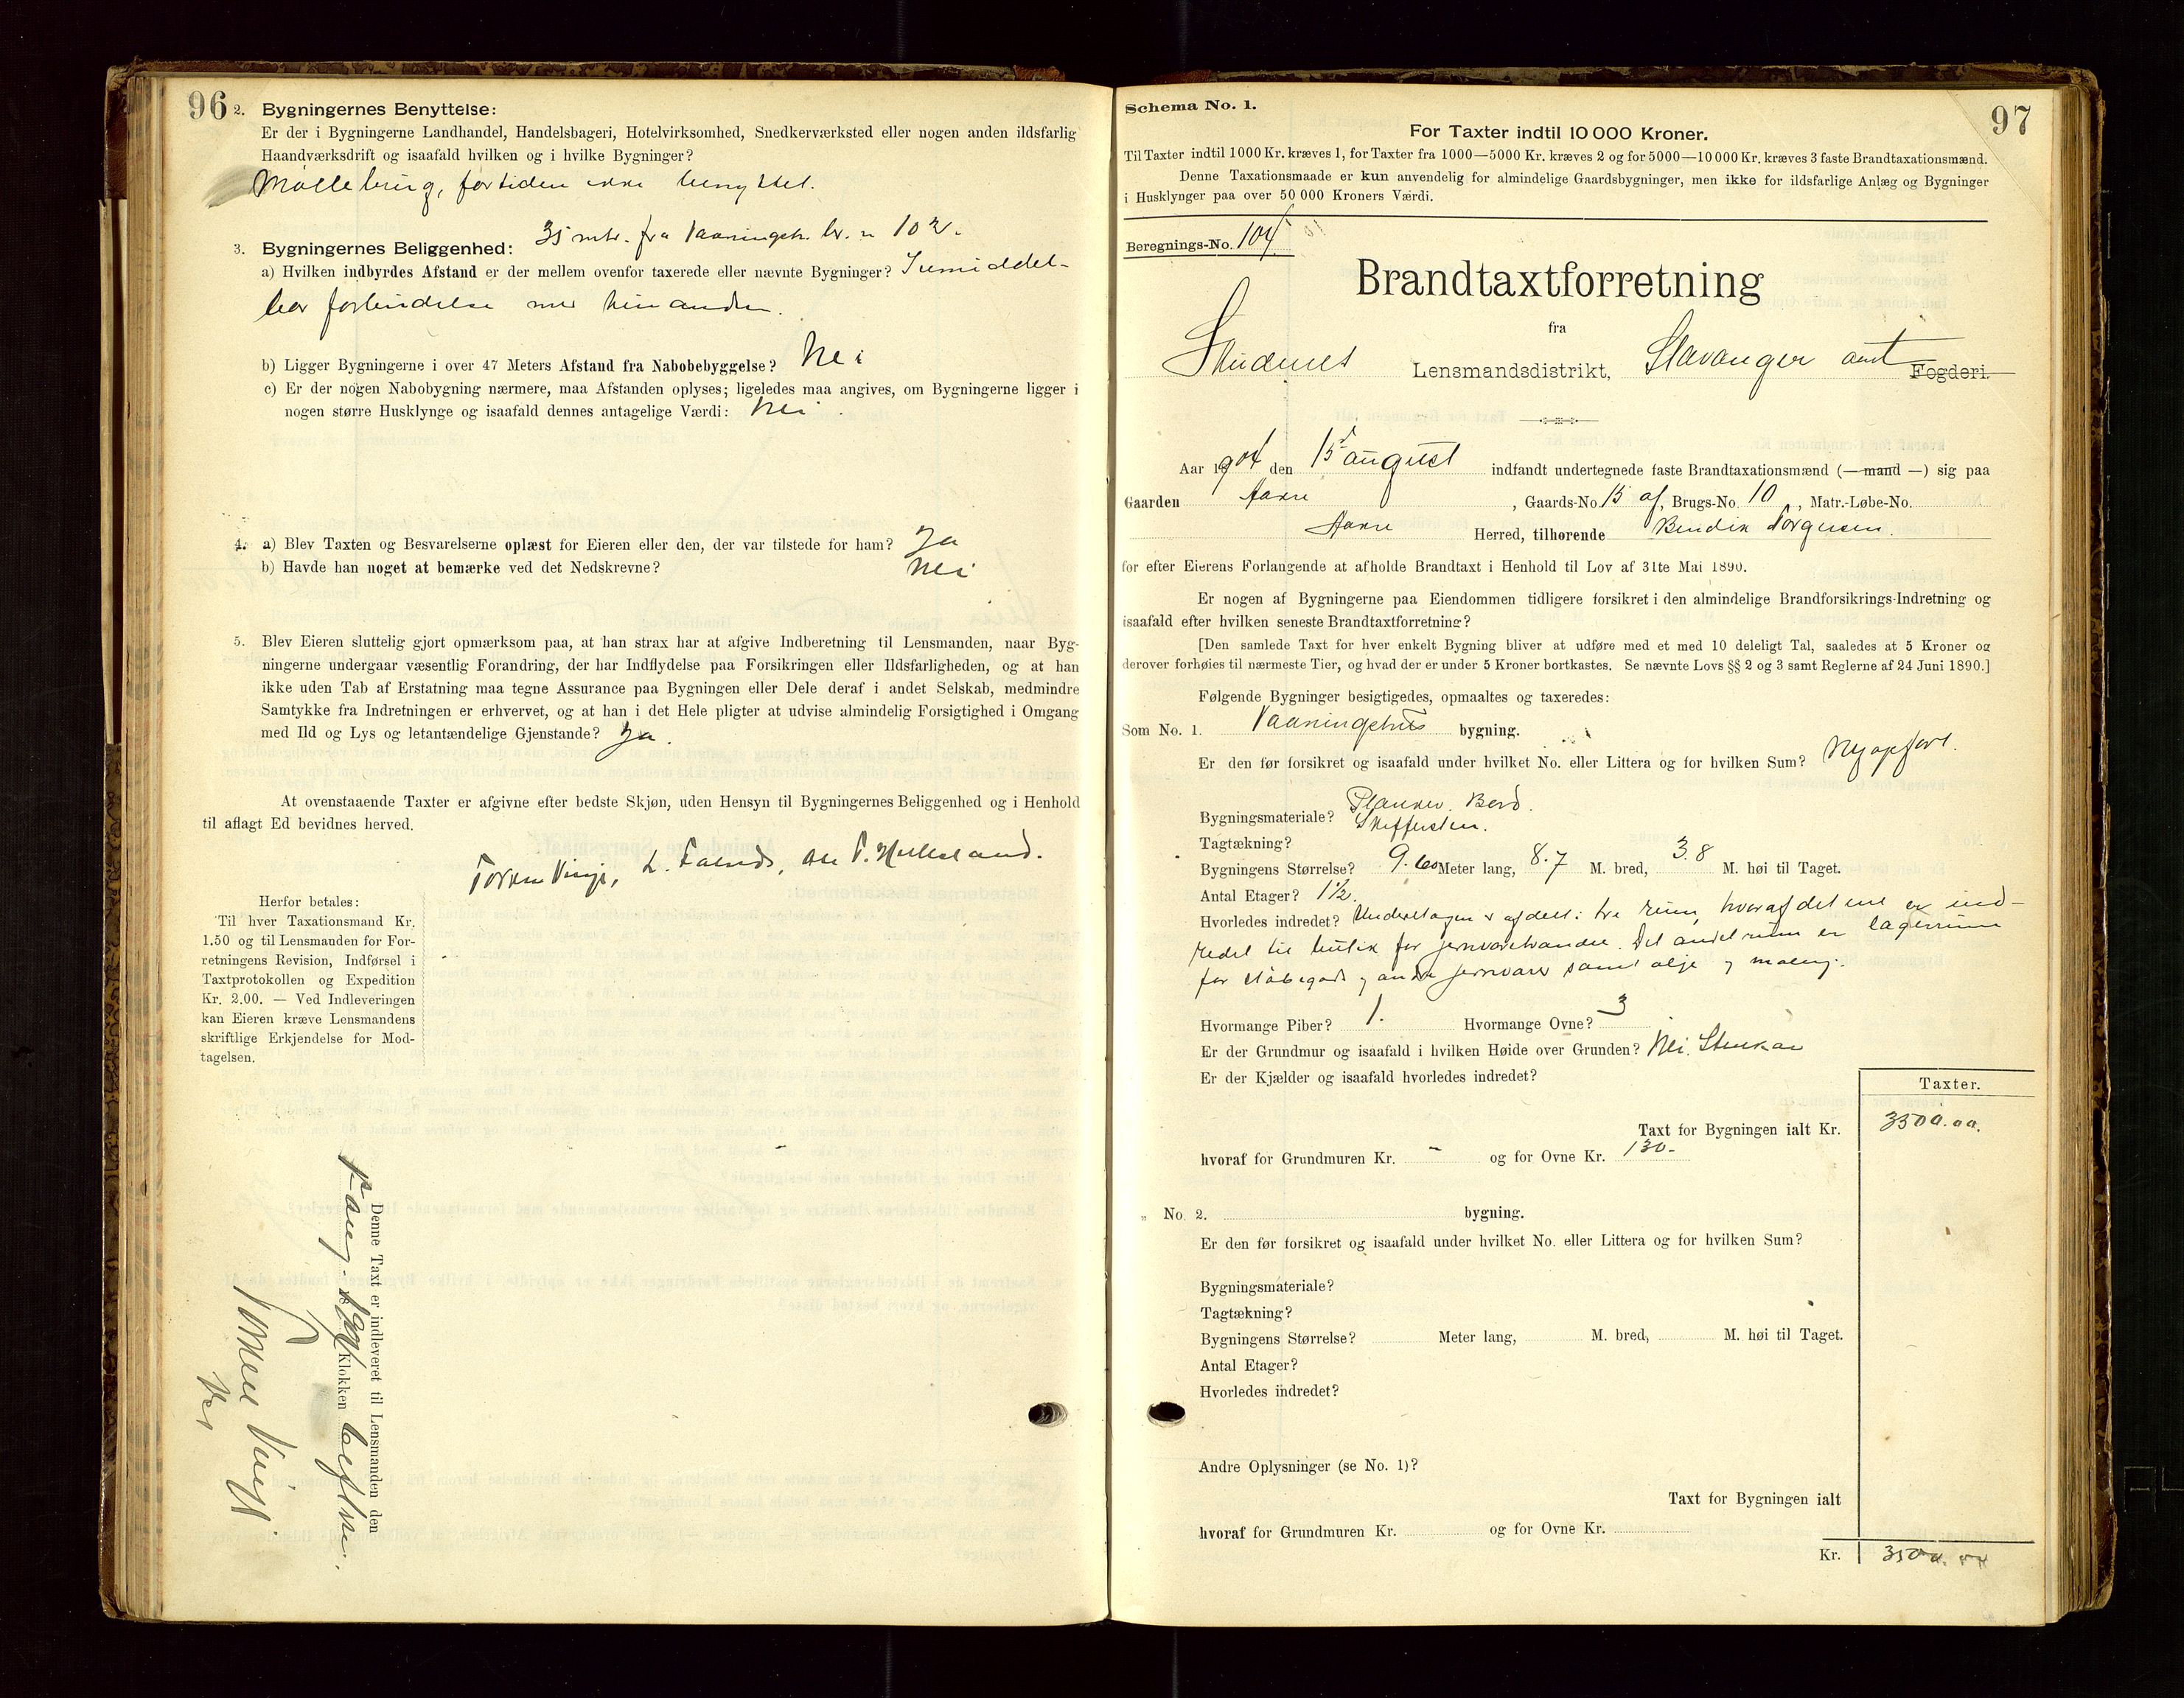 96
2. Bygningernes Benyttelse:
Er der i Bygningerne Landhandel, Handelsbageri, Hotelvirksomhed, Snedkerværksted eller nogen anden ildsfarlig
Haandværksdrift og isaafald hvilken og i hvilke Bygninger?
Møllebrug, fortiden ikke benyttet.
35 mtr. fra Vaaningsh. br. n 102.
3. Bygningernes Beliggenhed:
a) Hvilken indbyrdes Afstand er der mellem ovenfor taxerede eller nævnte Bygninger? I umiddel-
bar forbindelse med hinanden.
b) Ligger Bygningerne i over 47 Meters Afstand fra Nabobebyggelse? Nei
c) Er der nogen Nabobygning nærmere, maa Afstanden oplyses; ligeledes maa angives, om Bygningerne ligger i
nogen større Husklynge og isaafald dennes antagelige Værdi: Nei
4. a) Blev Taxten og Besvarelserne oplæst for Eieren eller den, der var tilstede for ham? Ja
b) Havde han noget at bemærke ved det Nedskrevne? Nei
5. Blev Eieren sluttelig gjort opmærksom paa, at han strax har at afgive Indberetning til Lensmanden, naar Byg-
ningerne undergaar væsentlig Forandring, der har Indflydelse paa Forsikringen eller Ildsfarligheden, og at han
ikke uden Tab af Erstatning maa tegne Assurance paa Bygningen eller Dele deraf i andet Selskab, medmindre
Samtykke fra Indretningen er erhvervet, og at han i det Hele pligter at udvise almindelig Forsigtighed i Omgang
med Ild og Lys og letantændelige Gjenstande? Ja.
At ovenstaaende Taxter er afgivne efter bedste Skjøn, uden Hensyn til Bygningernes Beliggenhed og i Henhold
til aflagt Ed bevidnes herved.
Torsten Vinje, L. Falnes, Ole P.
Herfor betales:
Til hver Taxationsmand Kr.
1.50 og til Lensmanden for For-
retningens Revision, Indførsel i
Taxtprotokollen og Expedition
Kr. 2.00. — Ved Indleveringen
kan Eieren kræve Lensmandens
skriftlige Erkjendelse for Mod-
tagelsen.
Denne Taxt er indleveret til Lensmanden den
aug. 1904 Klokken
Vinje
97
Schema No. 1.
For Taxter indtil 10 000 Kroner.
Til Taxter indtil 1000 Kr. kræves 1, for Taxter fra 1000—5000 Kr. kræves 2 og for 5000—10 000 Kr. kræves 3 faste Brandtaxationsmænd.
Denne Taxationsmaade er kun anvendelig for almindelige Gaardsbygninger, men ikke for ildsfarlige Anlæg og Bygninger
i Husklynger paa over 50 000 Kroners Værdi.
Beregnings-No. 104
Brandtaxtforretning
fra
Skudenes Lensmandsdistrikt, Stavanger amt Fogderi.
Aar 1904 den 15 august indfandt undertegnede faste Brandtaxationsmænd (—mand—) sig paa
Gaarden Aakre, Gaards-No. 15 af, Brugs-No. 10, Matr.-Løbe-No.
Aakre Herred, tilhørende Bendik Torgersen.
for efter Eierens Forlangende at afholde Brandtaxt i Henhold til Lov af 31te Mai 1890.
Er nogen af Bygningerne paa Eiendommen tidligere forsikret i den almindelige Brandforsikrings-Indretning og
isaafald efter hvilken seneste Brandtaxtforretning?
[Den samlede Taxt for hver enkelt Bygning bliver at udføre med et med 10 deleligt Tal, saaledes at 5 Kroner og
derover forhøies til nærmeste Tier, og hvad der er under 5 Kroner bortkastes. Se nævnte Lovs §§ 2 og 3 samt Reglerne af 24 Juni 1890.]
Følgende Bygninger besigtigedes, opmaaltes og taxeredes:
Som No. 1. Vaaningshus bygning.
Er den før forsikret og isaafald under hvilket No. eller Littera og for hvilken Sum? Nyopført.
Bygningsmateriale? Planker. Bord.
Tagtækning? Skiffersten.
Bygningens Størrelse? 9.60 Meter lang, 8.7 M. bred, 3.8 M. høi til Taget.
Antal Etager? 1½.
Hvorledes indredet? Underetagen er afdelt i tre rum, hvoraf det ene er ind-
redet til butik for jernvarehandel. Det andet rum er lagerrum
for støbegods og andre jernvarer samt olje og maling.
Hvormange Piber? 1. Hvormange Ovne? 3
Er der Grundmur og isaafald i hvilken Høide over Grunden? Nei. Stenkar
Er der Kjælder og isaafald hvorledes indredet?
Taxter.
Taxt for Bygningen ialt Kr. 3500.00.
hvoraf for Grundmuren Kr. - og for Ovne Kr. 130-
„ No. 2. bygning.
Er den før forsikret og isaafald under hvilket No. eller Littera og for hvilken Sum?
Bygningsmateriale?
Tagtækning?
Bygningens Størrelse? Meter lang, M. bred, M. høi til Taget.
Antal Etager?
Hvorledes indredet?
Andre Oplysninger (se No. 1)?
Taxt for Bygningen ialt
hvoraf for Grundmuren Kr. og for Ovne Kr.
Kr. 3500.00